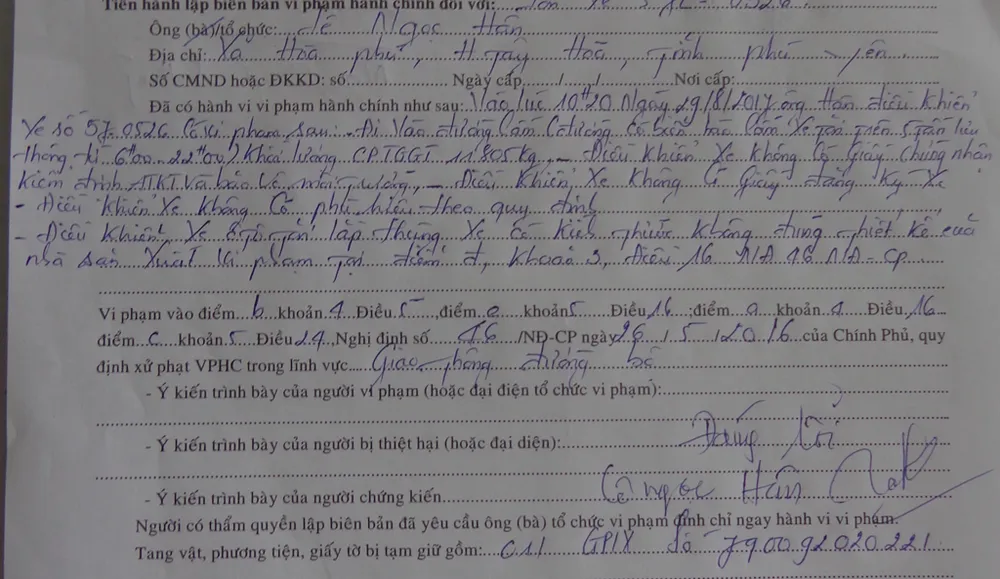 Tiến hành lập biên bản vi phạm hành chính đối với:
Ông (bà)/tổ chức: Lê Ngọc Hân
Địa chỉ: Xã Hòa phú, H Tây Hoà, tỉnh phú yên
Số CMND hoặc ĐKKD: số Ngày cấp / / Nơi cấp:
Đã có hành vi vi phạm hành chính như sau: Vào lúc 10H20 Ngày 29/8/2017 ông Hân điều khiển
Xe số 57-0526 Có vi phạm sau: - Đi vào đường Cấm Có biển báo Cấm Xe tải trên 5 tấn lưu
thông từ 6H00 - 22H00) Khối lượng CPTGGT 11805Kg, - Điều khiển Xe không Có Giấy Chứng nhận
kiểm định ATKT Và bảo Vệ môi trường, - Điều Khiển Xe không Có Giấy đăng Ký Xe
- Điều Khiển Xe Không Có phù hiệu theo quy định
- Điều Khiển Xe ô tô tải lắp thùng Xe có Kích thước Không đúng thiết kế của
nhà Sản Xuất Vi phạm tại điểm đ, Khoản 3, Điều 16 NĐ 46 NĐ-CP
Vi phạm vào điểm b khoản 4 Điều 5, điểm e khoản 5 Điều 16; điểm a khoản 4 Điều 16
điểm c khoản 5 Điều 24, Nghị định số 46 /NĐ-CP ngày 26 / 5 / 2016 của Chính Phủ, quy
định xử phạt VPHC trong lĩnh vực Giao thông đường bộ
- Ý kiến trình bày của người vi phạm (hoặc đại diện tổ chức vi phạm):
- Ý kiến trình bày của người bị thiệt hại (hoặc đại diện): Đúng lỗi
- Ý kiến trình bày của người chứng kiến Lê ngọc Hân
Người có thẩm quyền lập biên bản đã yêu cầu ông (bà) tổ chức vi phạm đình chỉ ngay hành vi vi phạm.
Tang vật, phương tiện, giấy tờ bị tạm giữ gồm: 01 GPLX số 790092020221